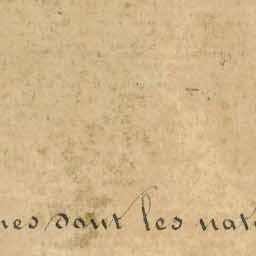 nes dont les nat